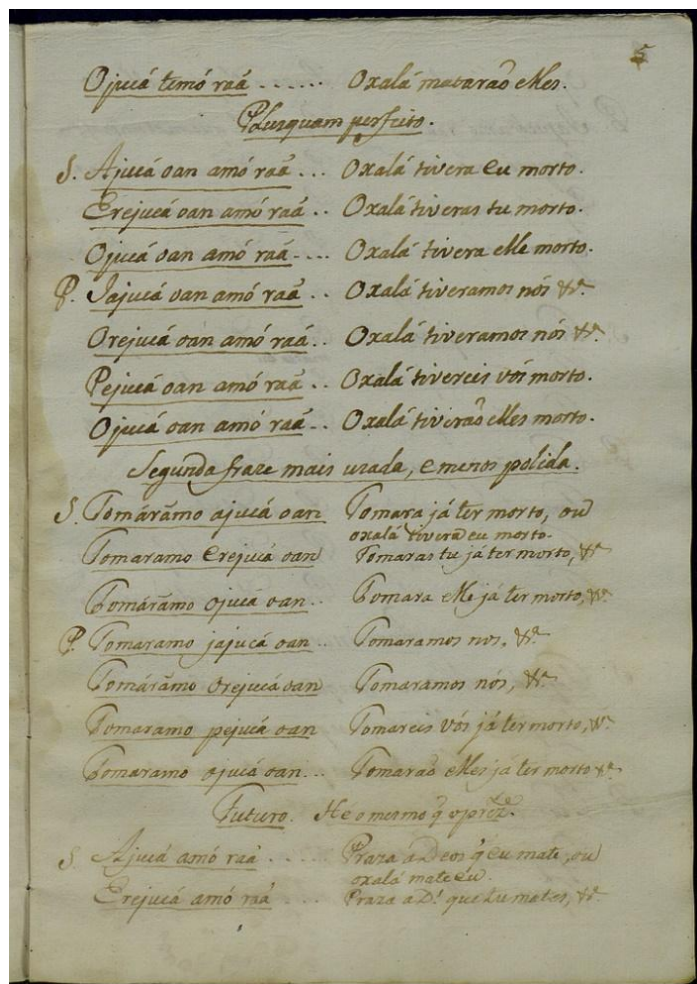 5
Ojucá temó raã ...... Oxalá mataraõ elles.
Plusquam perfeito.
S. Ajucá oan amó raã ... Oxalá tivera eu morto.
Erejucá oan amó raã .. Oxalá tiveras tu morto.
Ojucá oan amó raã .... Oxalá tivera elle morto.
P. Jajucá oan amó raã .. Oxalá tiveramos nós &ª.
Orejucá oan amó raá .. Oxalá tiveramos nós &ª.
Pejucá oan amó raã .. Oxalá tivereis vós morto.
Ojucá oan amó raã .. Oxalá tiveraõ elles morto.
Segunda fraze mais uzada, e menos polida.
S. Tomárãmo ajucá oan Tomara já ter morto, ou
oxalá tivera eu morto.
Tomaramo erejucá oan Tomaras tu já ter morto, &ª
Tomárãmo ojucá oan .. Tomara elle já ter morto, &ª.
P. Tomaramo jajucá oan .. Tomaramos nos. &ª.
Tomárãmo orejucá oan Tomaramos nós, &ª.
Tomaramo pejucá oan Tomareis vós já ter morto, &ª.
Tomaramo ojucá oan ... Tomaraõ elles já ter morto &ª.
Futuro. He o mesmo q̃ o prezte.
S. Ajucá amó raã ..... Praza a Deos q̃ eu mate, ou
oxalá mate eu.
Erejucá amó raã .... Praza a D.s que tu mates, &ª.